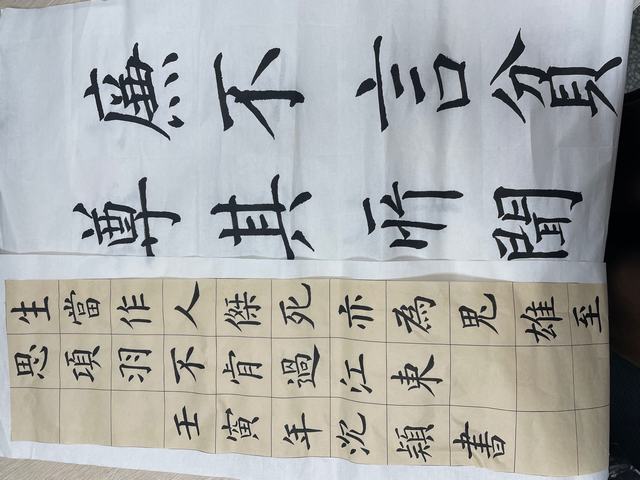 廉不言貧
尊其所聞
生當作人傑死亦為鬼雄至
思項羽不肯過江東
壬寅年沉穎書